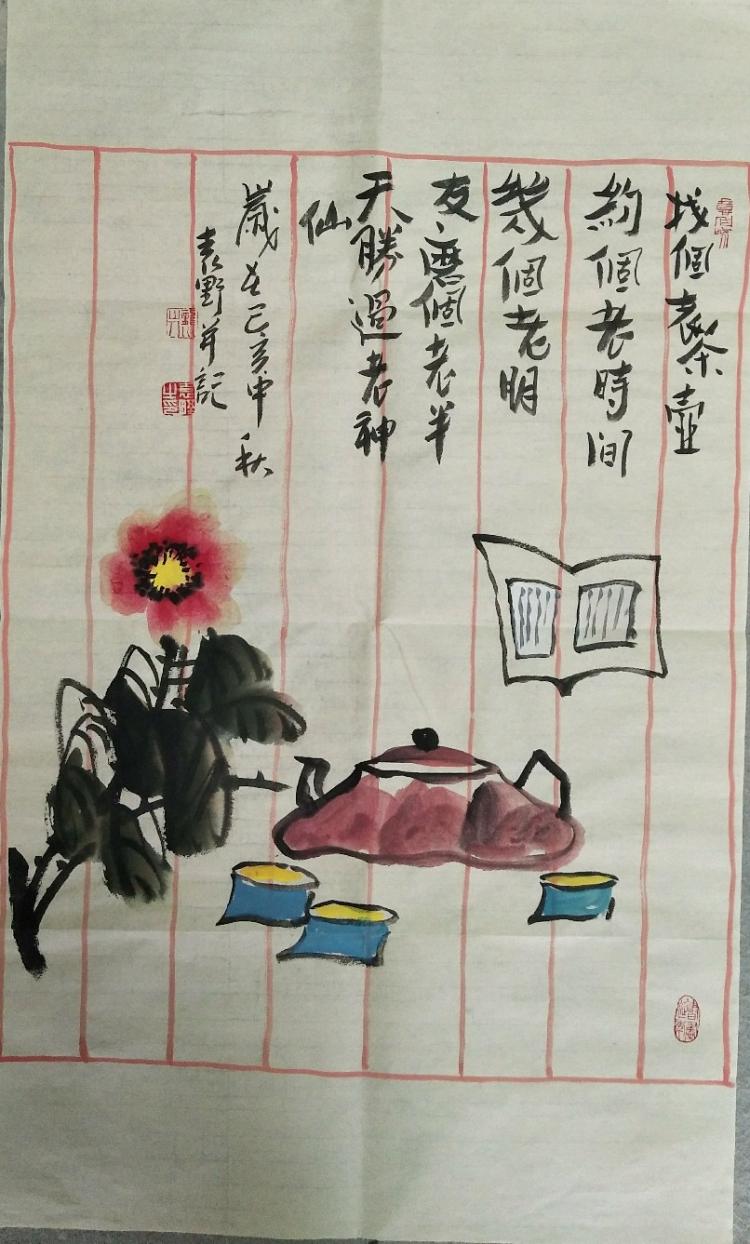 找個老茶壺
約個老時間
幾個老朋
友、磨個老半
天勝過老神
仙
歲在己亥中秋
袁野并記